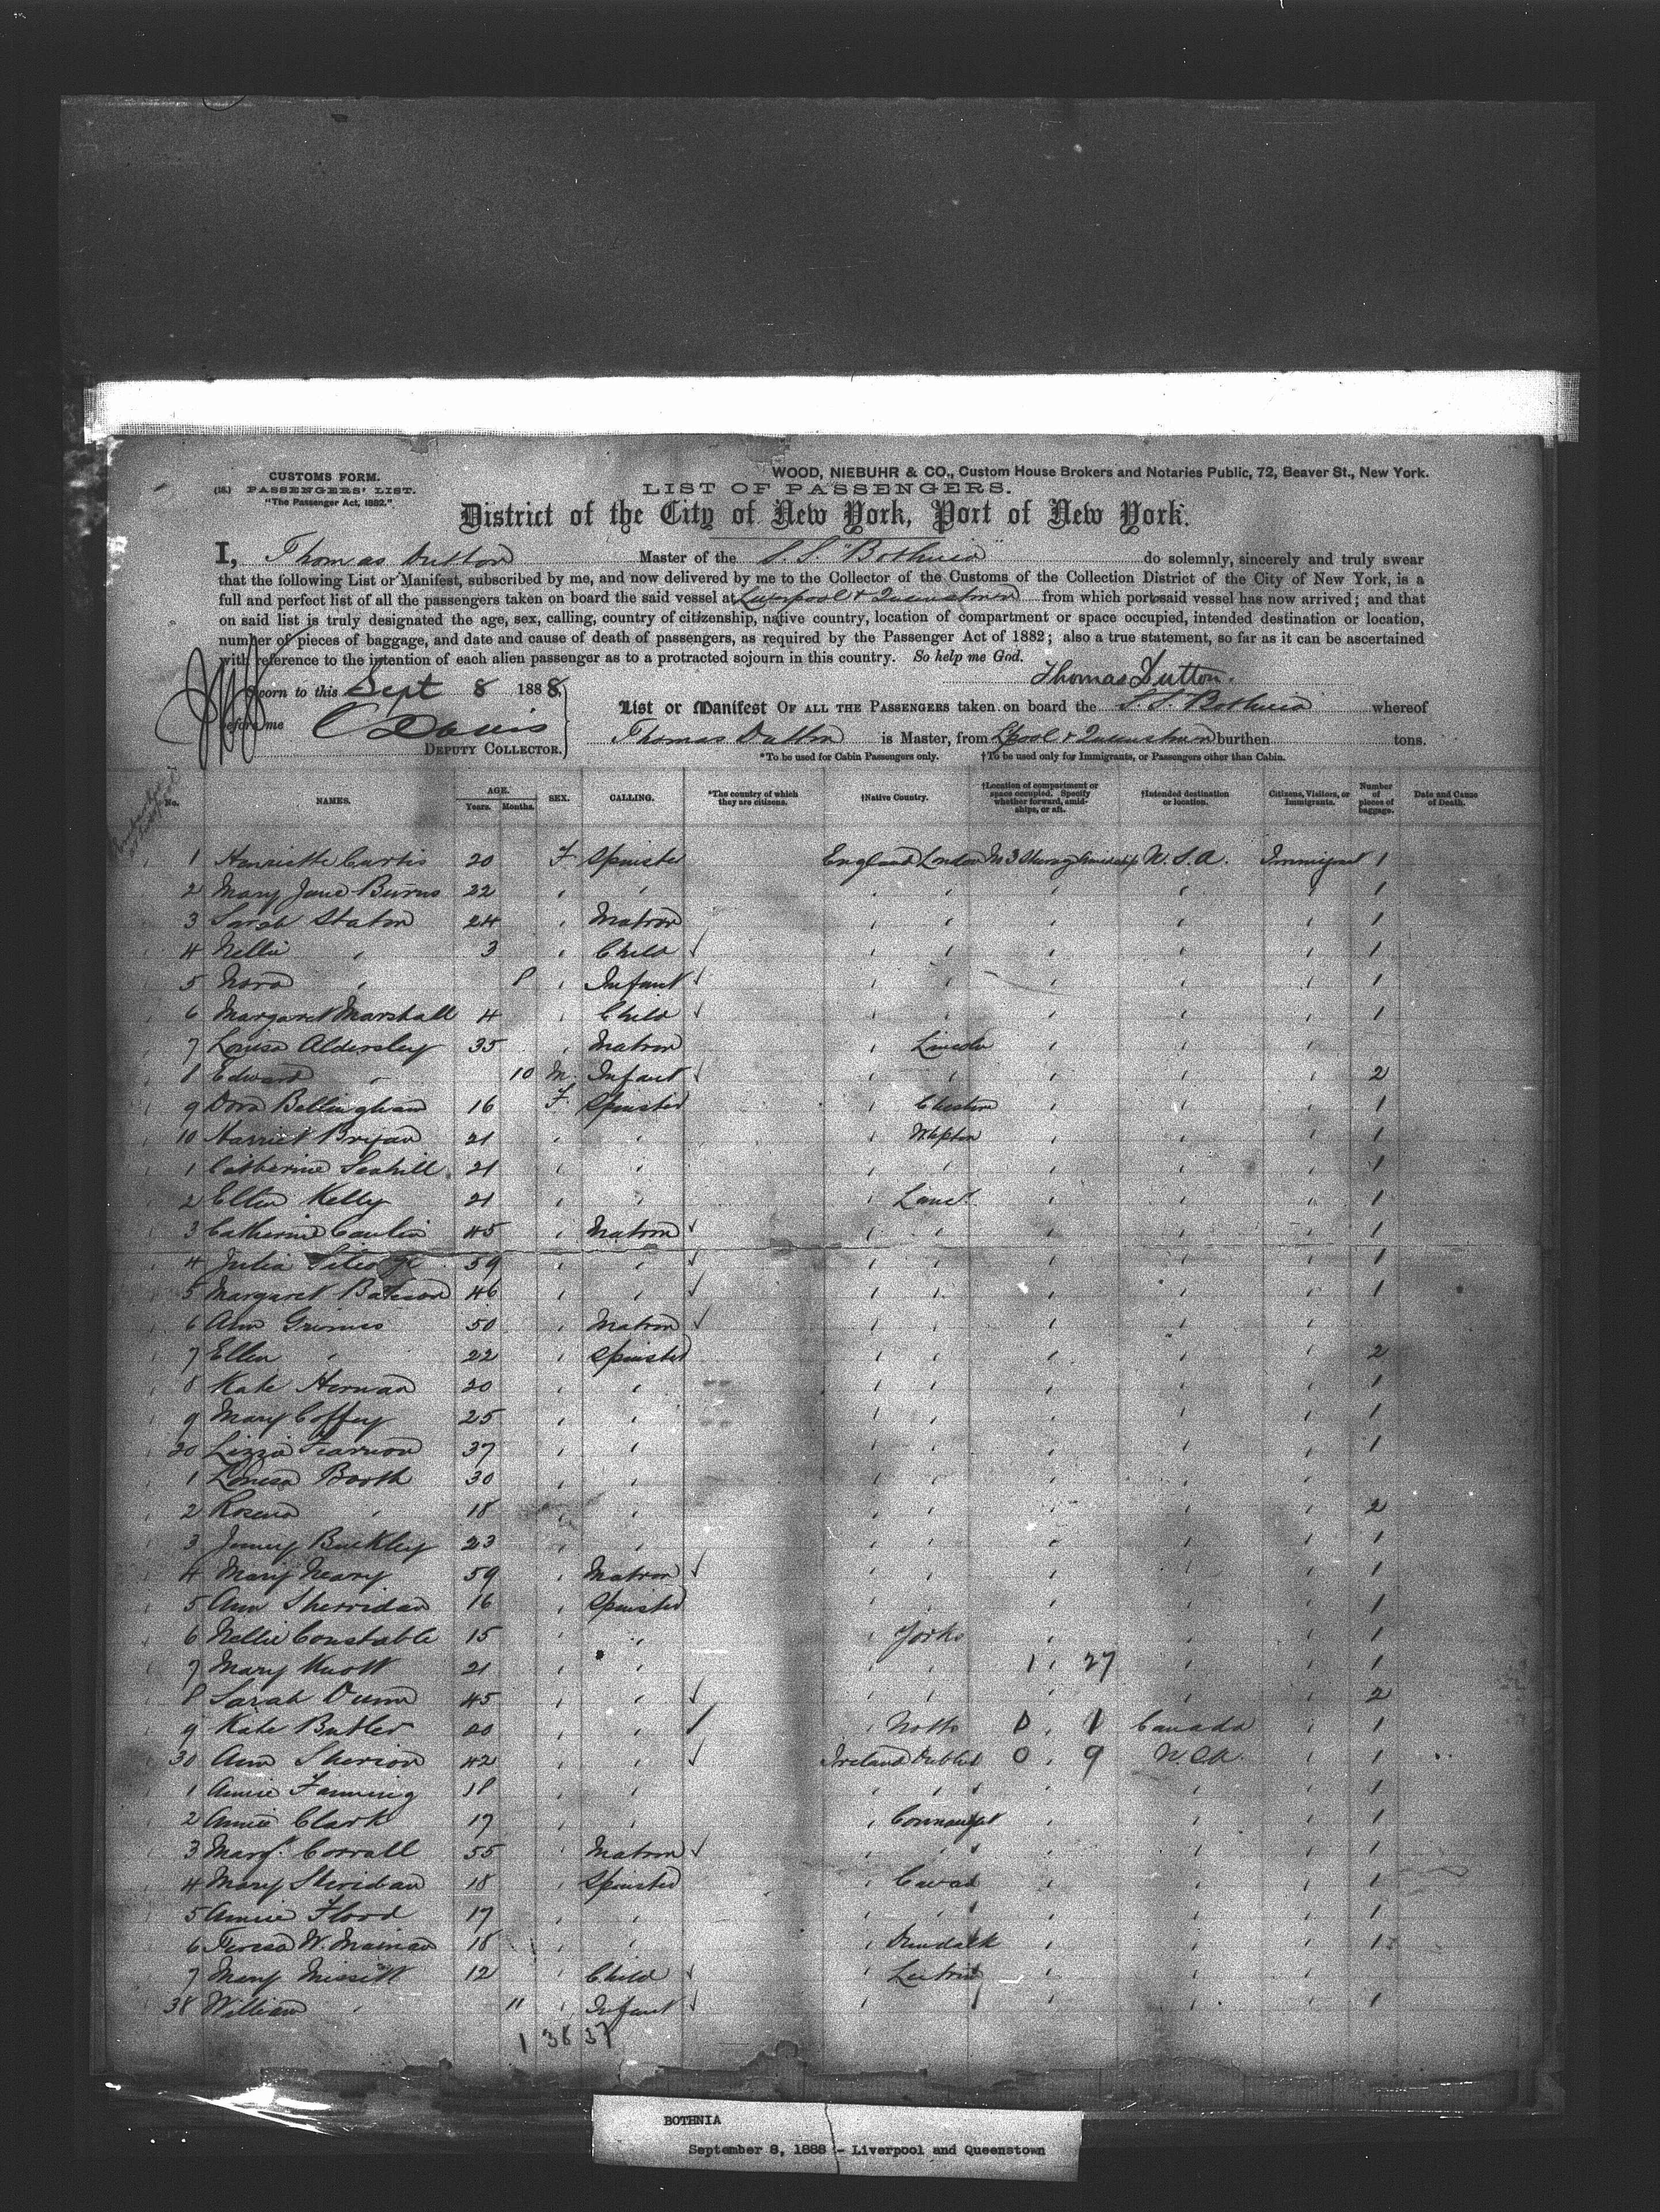 CUSTOMS FORM.
(18.) PASSENGERS' LIST.
"The Passenger Act, 1882."
WOOD, NIEBUHR & CO., Custom House Brokers and Notaries Public, 72, Beaver St., New York.
LIST OF PASSENGERS.
District of the City of New York, Port of New York.
I, Thomas Dutton Master of the S.S. "Bothnia" do solemnly, sincerely and truly swear
that the following List or Manifest, subscribed by me, and now delivered by me to the Collector of the Customs of the Collection District of the City of New York, is a
full and perfect list of all the passengers taken on board the said vessel at Liverpool & Queenstown from which port said vessel has now arrived; and that
on said list is truly designated the age, sex, calling, country of citizenship, native country, location of compartment or space occupied, intended destination or location,
number of pieces of baggage, and date and cause of death of passengers, as required by the Passenger Act of 1882; also a true statement, so far as it can be ascertained
with reference to the intention of each alien passenger as to a protracted sojourn in this country. So help me God.
Thomas Dutton.
Sworn to this Sept 8 1888
before me C Davis
DEPUTY COLLECTOR.
List or Manifest OF ALL THE PASSENGERS taken on board the S.S. Bothnia whereof
Thomas Dutton is Master, from Lpool & Queenstown burthen tons.
*To be used for Cabin Passengers only. †To be used only for Immigrants, or Passengers other than Cabin.
No. NAMES. AGE. Years. Months. SEX. CALLING. *The country of which they are citizens. †Native Country. †Location of compartment or space occupied. Specify whether forward, amidships, or aft. †Intended destination or location. Citizens, Visitors, or Immigrants. Number of pieces of baggage. Date and Cause of Death.
1 Henriette Curtis 20 F Spinster England London U.S.A. Immigrant 1
2 Mary Jane Burns 22 " " " " " " " 1
3 Sarah Staton 24 " Matron " " " " " 1
4 Nellie " 3 " Child " " " " " 1
5 Nora " 8 " Infant " " " " " 1
6 Margaret Marshall 4 " Child " " " " " 1
7 Louisa Aldersley 35 " Matron " Lincoln " " "
8 Edward " 10 M. Infant " " " " " 2
9 Dora Bellingham 16 F. Spinster " Cheshire " " " 1
10 Harriet Bryan 21 " " " " " " 1
1 Catherine 21 " " " " " " " 1
2 Ellen Kelly 21 " " " Lanc. " " " 1
3 Catherine 45 " Matron " " " " " 1
4 Julia 59 " " " " " " " 1
5 Margaret Bateson 46 " " " " " " " 1
6 Ann Grimes 50 " Matron " " " " "
7 Ellen " 22 " Spinster " " " " " 2
8 Kate 20 " " " " " " " 1
9 Mary Coffey 25 " " " " " " " 1
20 Lizzie 37 " " " " " " " 1
1 Louisa Booth 30 " " " " " " "
2 Rosena " 18 " " " " " " " 2
3 Buckley 23 " " " " " " " 1
4 Mary Neary 59 " Matron " " " " " 1
5 Ann Sherridan 16 " Spinster " " " " " 1
6 Nellie Constable 15 " " " Yorks " " " 1
7 Mary Knott 21 " " " " 1 " 27 " " 1
8 Sarah Dunn 45 " " " " " " " 2
9 Kate Butler 20 " " " Notts 0 " 1 Canada " 1
30 Ann 42 " " Ireland Dublin 0 " 9 U.S.A. " 1
1 Annie Fanning 18 " " " " " " " 1
2 Annie Clark 17 " " " Connaught " " " 1
3 Margt. Corrall 55 " Matron " " " " " 1
4 Mary Sheridan 18 " Spinster " Cavan " " " 1
5 Annie Flood 17 " " " " " " " 1
6 Teresa 18 " " " Dundalk " " " 1
7 Mary 12 " Child " Leitrim " " "
38 William " 11 " Infant " " " " " 1
1 38 37
BOTHNIA
September 8, 1888 - Liverpool and Queenstown